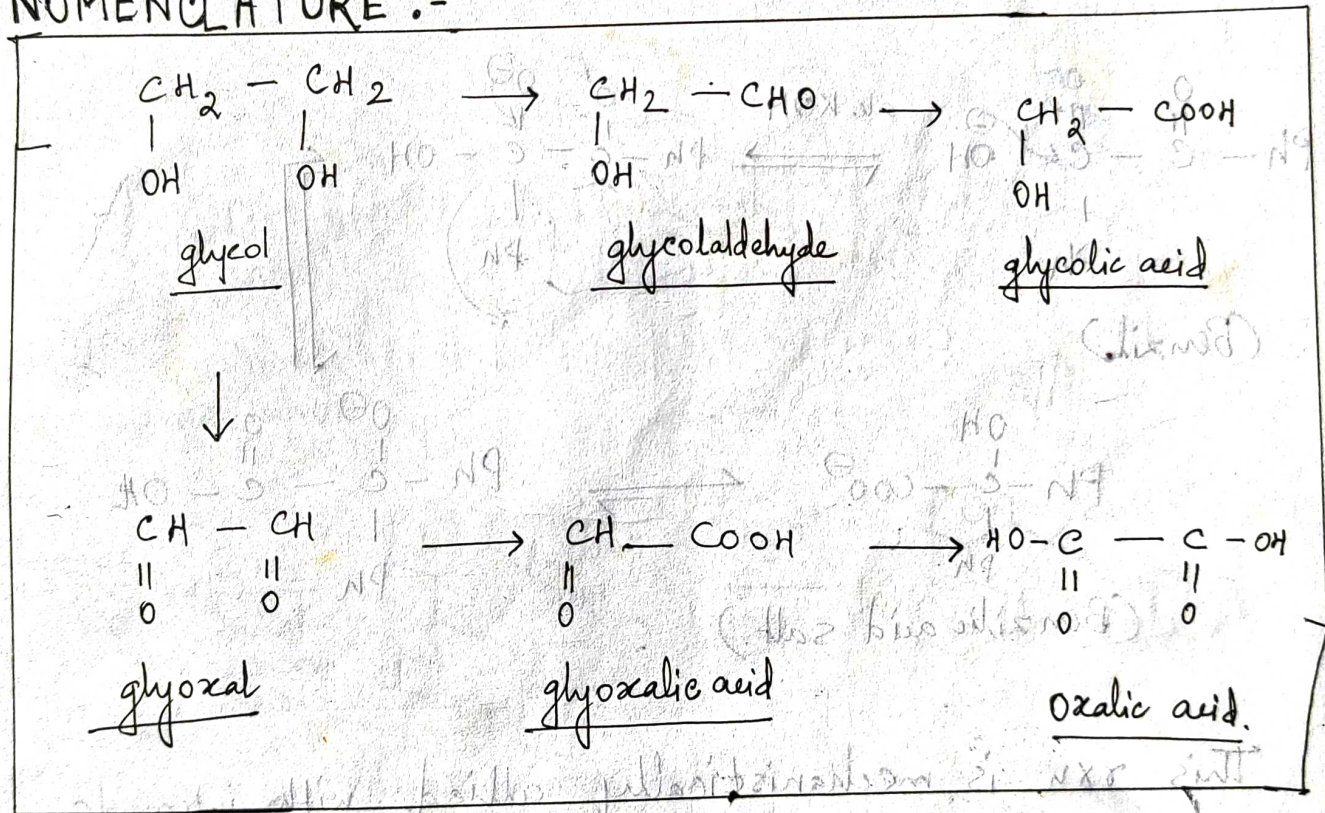 NOMENCLATURE :-
CH2 - CH2 → CH2 - CHO → CH2 - COOH
| | | |
OH OH OH OH
glycol glycolaldehyde glycolic acid
↓
CH - CH → CH - COOH → HO-C - C-OH
|| || || || ||
O O O O O
glyoxal glyoxalic acid oxalic acid.